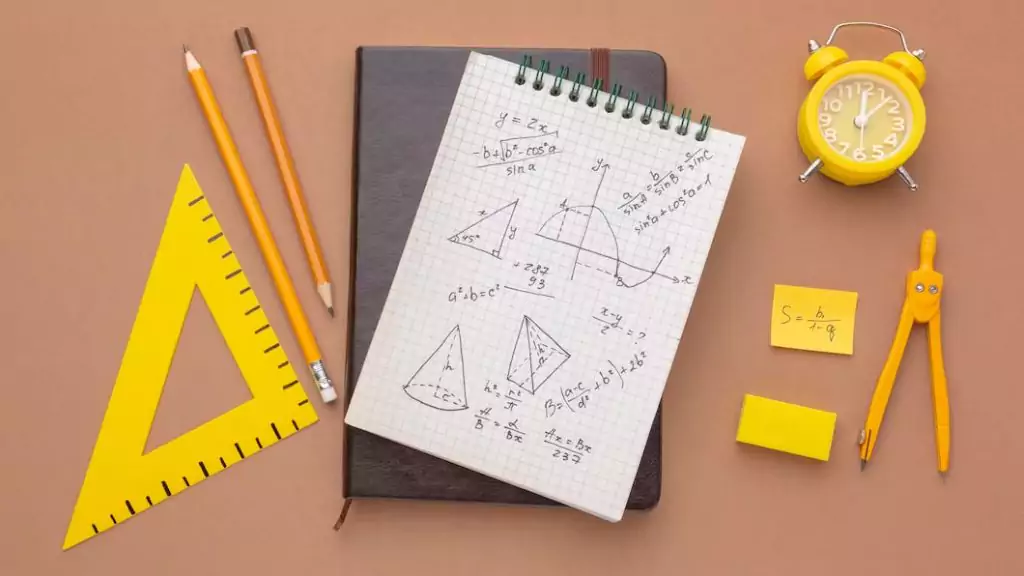 y = 2x
-b+√b²-cos²a
sin a
y
a/sin A = b/sin B = c/sin C
sin²a + cos²a = 1
A
x
y
45°
B
x
+ 287
93
a² + b = c²
x-y/z² = ?
h
h
r
h² = r²/π
B = (a·c/d² + b²) + 2b²
A/B = α/Bx
Ax = Bx
237
S = b₁/1-q
12
1
2
3
4
5
6
7
8
9
10
11